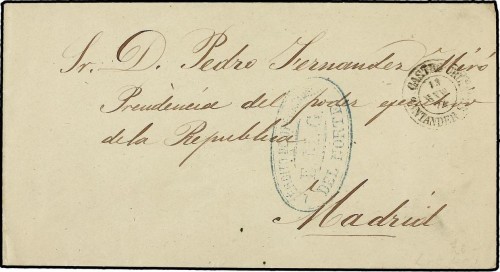 Sr. D. Pedro Fernandez Miró
Presidencia del poder ejecutivo
de la Republica
Madrid
CASTRO
13
ENE
SANTANDER
DEL NORTE